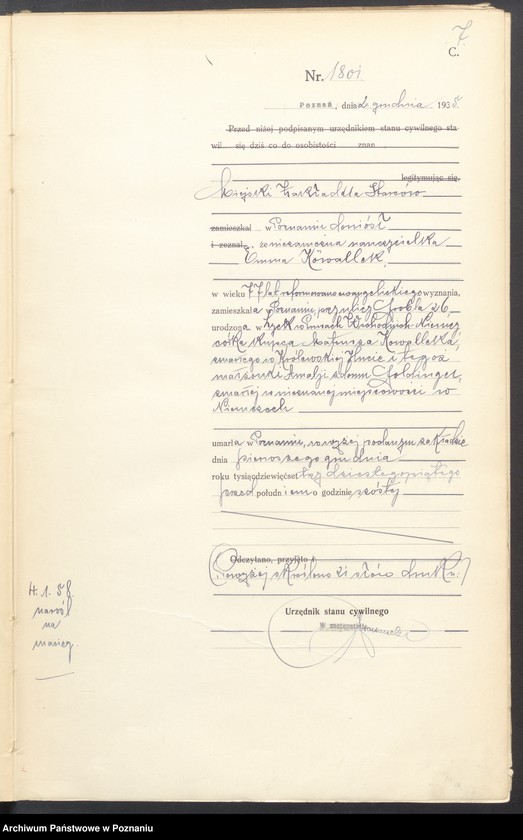 7
C.
Nr. 1801
Poznań, dnia 2 grudnia 1935.
Przed niżej podpisanym urzędnikiem stanu cywilnego sta-
wił się dziś co do osobistości znan
legitymując się
Miejski Zakład dla Starców
zamieszkał w Poznaniu doniósł
i zeznał, że niezamężna nauczycielka
Emma Kowallek,
w wieku 77 lat reformowano ewangelickiego wyznania,
zamieszkała w Poznaniu, przy ulicy Grobla 26
urodzona w Łęk w Prusach Wschodnich Niemcz
córka kupca Mateusza Kowalleka,
zmarłego w Królewskiej Hucie i tegoż
małżonki Amalji z domu Goldinger,
zmarłej w nieznanej miejscowości w
Niemczech
umarła w Poznaniu, w wyżej podanym zakładzie
dnia pierwszego grudnia
roku tysiąc dziewięćset trzydziestego piątego
przed południem o godzinie szóstej
Odczytano, przyjęto i
(Powyżej skreślono słów druku.)
Urzędnik stanu cywilnego
W zastępstwie
H. 1. 58
naród
na
Archiwum Państwowe w Poznaniu